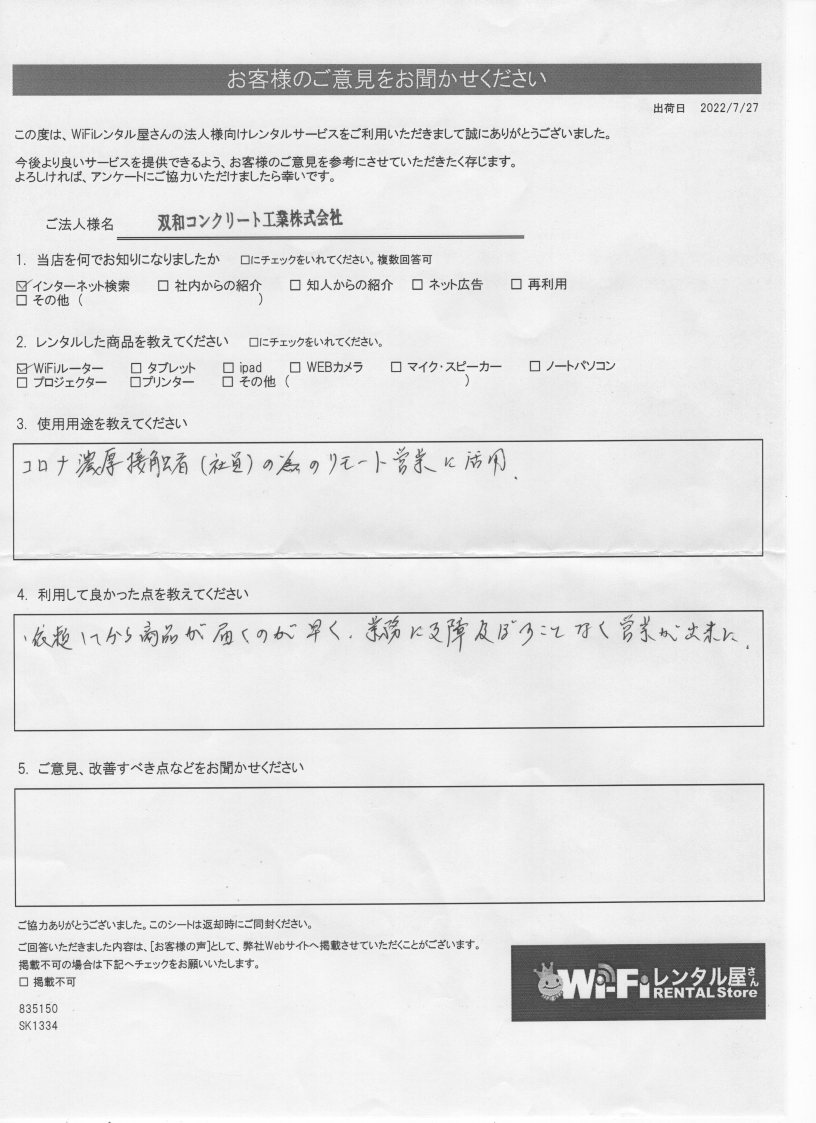 お客様のご意見をお聞かせください
出荷日 2022/7/27
この度は、WiFiレンタル屋さんの法人様向けレンタルサービスをご利用いただきまして誠にありがとうございました。
今後より良いサービスを提供できるよう、お客様のご意見を参考にさせていただきたく存じます。
よろしければ、アンケートにご協力いただけましたら幸いです。
ご法人様名 双和コンクリート工業株式会社
1. 当店を何でお知りになりましたか □にチェックをいれてください。複数回答可
☑インターネット検索 □ 社内からの紹介 □ 知人からの紹介 □ ネット広告 □ 再利用
□ その他 ( )
2. レンタルした商品を教えてください □にチェックをいれてください。
☑WiFiルーター □ タブレット □ ipad □ WEBカメラ □ マイク・スピーカー □ ノートパソコン
□ プロジェクター □プリンター □ その他 ( )
3. 使用用途を教えてください
コロナ濃厚接触者(社員)の為のリモート営業に活用.
4. 利用して良かった点を教えてください
・依頼してから商品が届くのが早く、業務に支障及ぼすことなく営業が出来た.
5. ご意見、改善すべき点などをお聞かせください
ご協力ありがとうございました。このシートは返却時にご同封ください。
ご回答いただきました内容は、[お客様の声]として、弊社Webサイトへ掲載させていただくことがございます。
掲載不可の場合は下記へチェックをお願いいたします。
□ 掲載不可
835150
SK1334
Wi-Fiレンタル屋さん
RENTAL Store